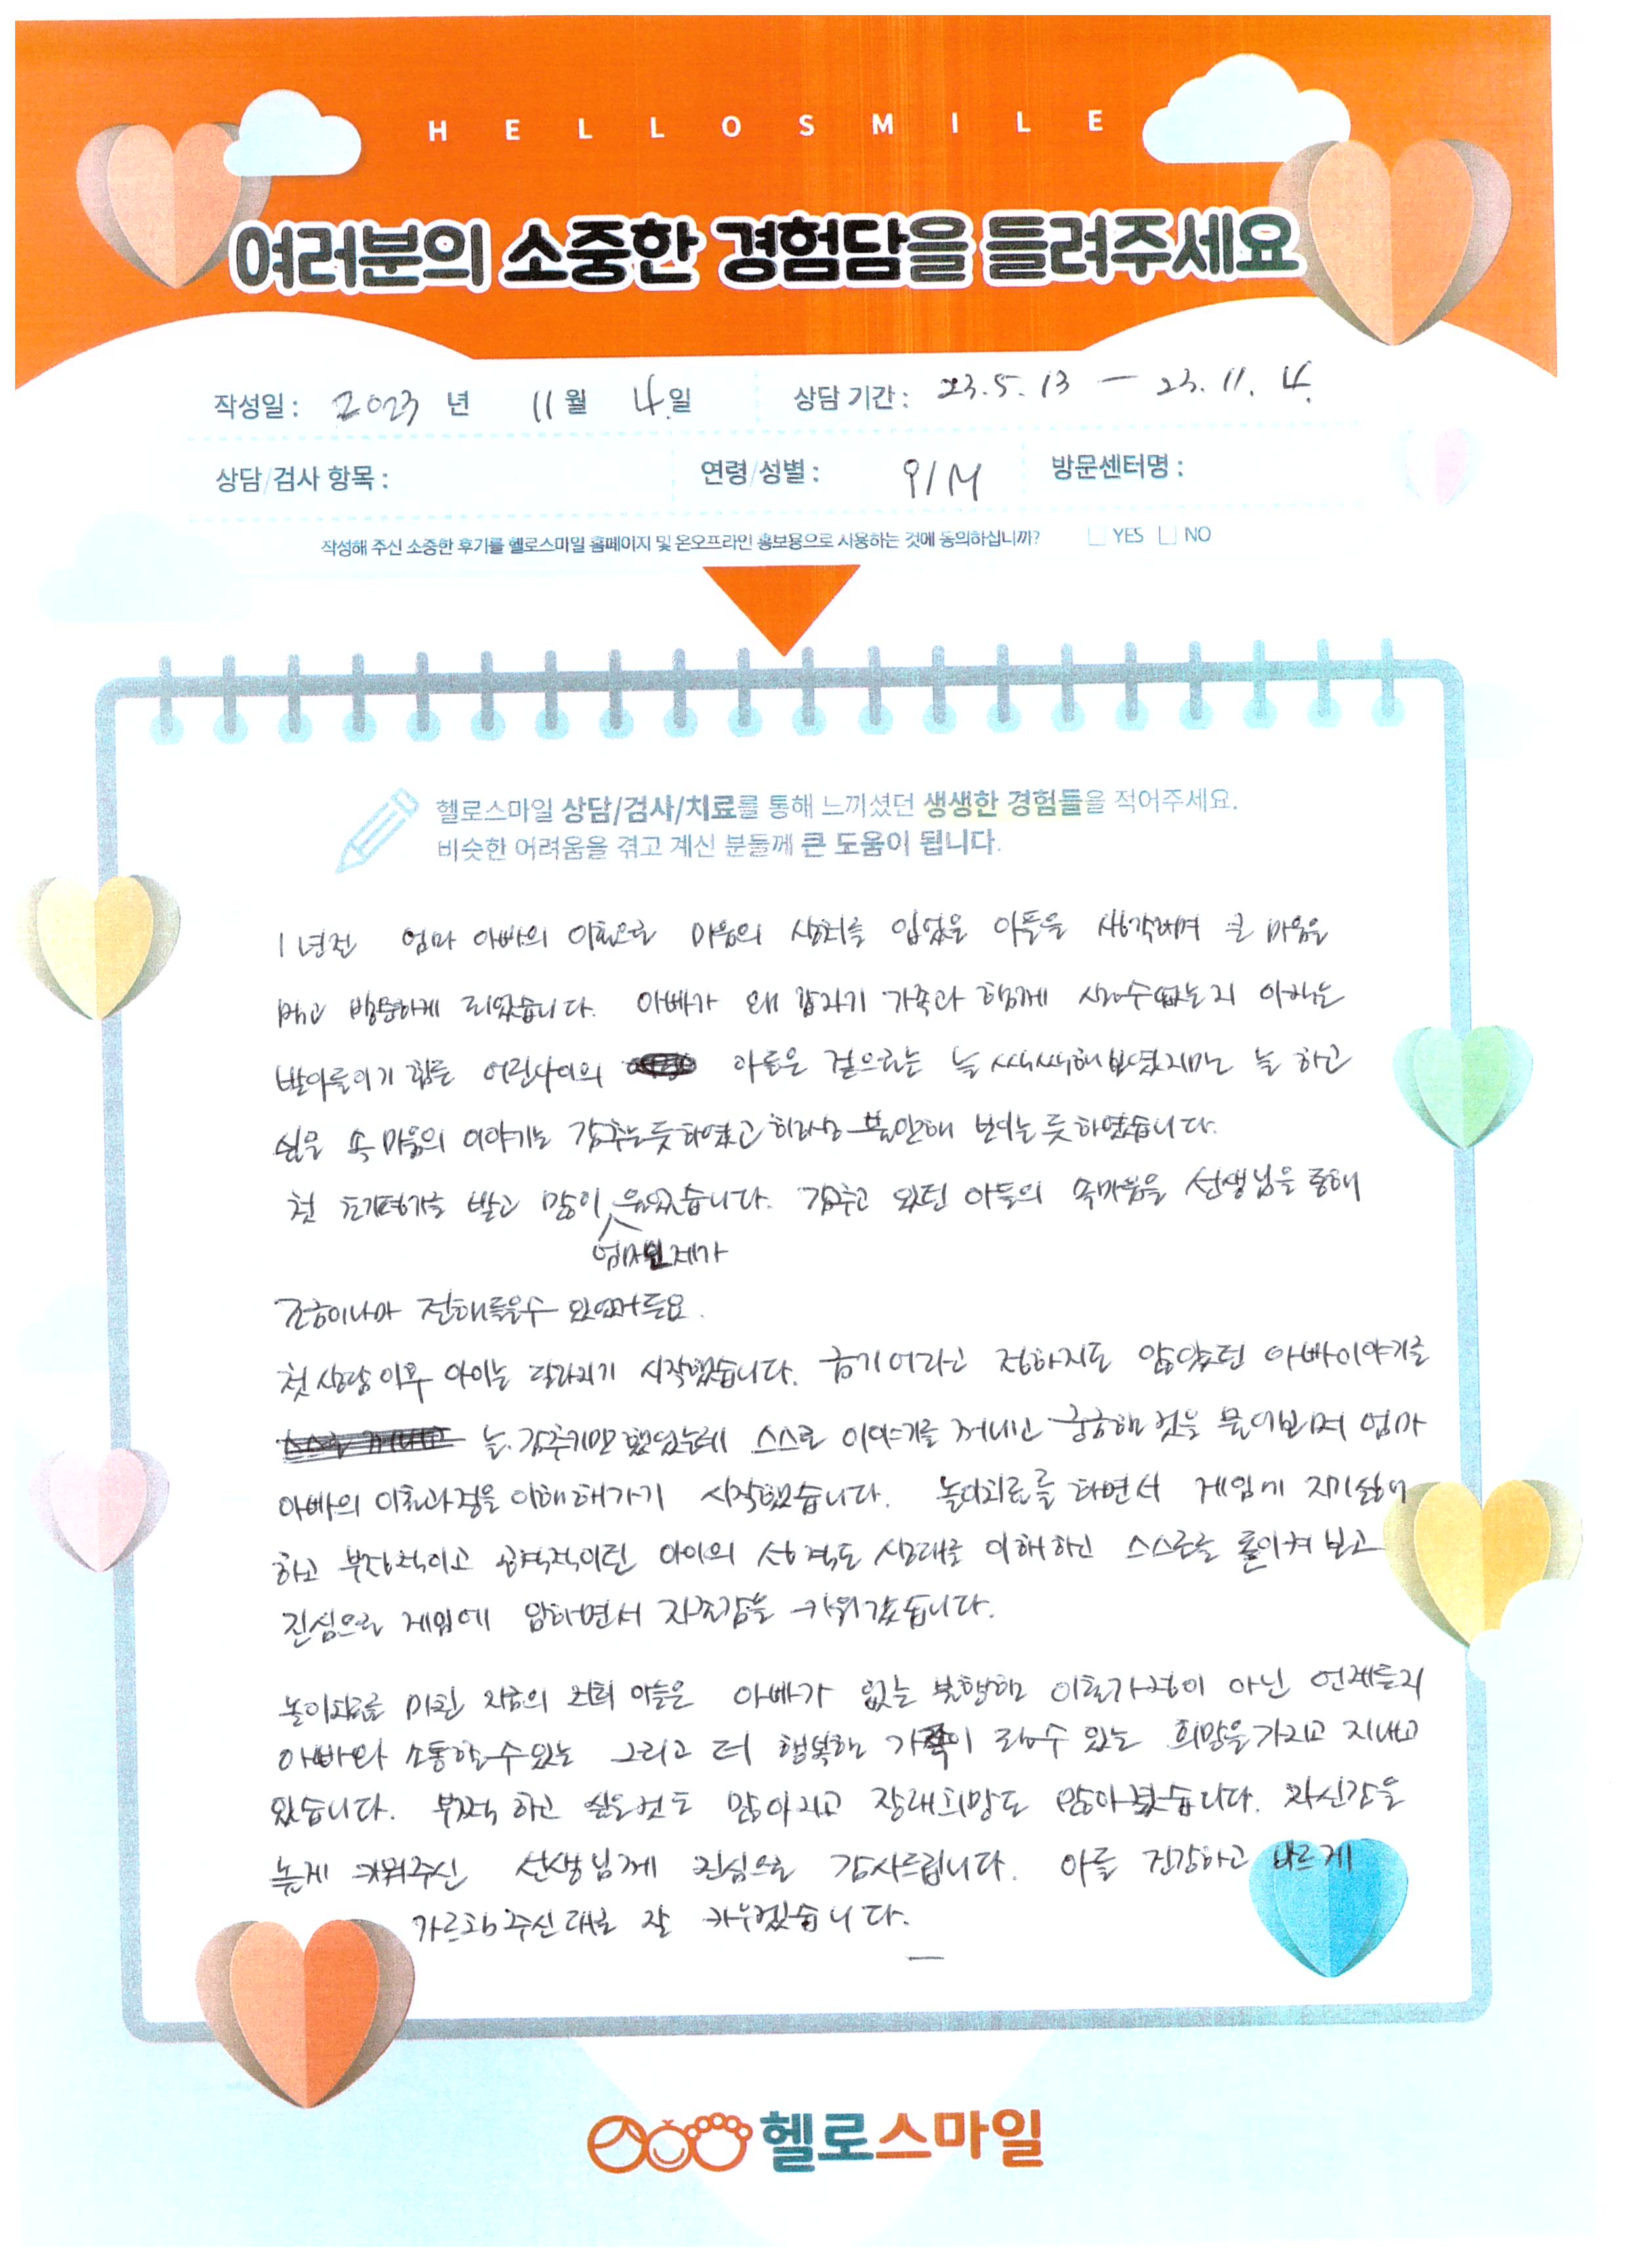 HELLOSMILE
여러분의 소중한 경험담을 들려주세요
작성일 : 2023 년 11월 4.일 상담 기간 : 23.5.13 - 23.11.4.
상담/검사 항목 : 연령/성별 : 9/M 방문센터명 :
작성해 주신 소중한 후기를 헬로스마일 홈페이지 및 온오프라인 홍보용으로 사용하는 것에 동의하십니까? YES NO
헬로스마일 상담/검사/치료를 통해 느끼셨던 생생한 경험들을 적어주세요.
비슷한 어려움을 겪고 계신 분들께 큰 도움이 됩니다.
1년전 엄마 아빠의 이혼으로 마음의 상처를 입었을 아들을 생각하며 큰 마음을
먹고 방문하게 되었습니다. 아빠가 왜 갑자기 가족과 함께 살수없는지 이해는
받아들이기 힘든 어린나이의 아들은 겉으로는 늘 씩씩해보였지만 늘 하고
싶은 속 마음의 이야기는 감추는듯하였고 항상 불안해 보이는 듯하였습니다.
첫 초기평가를 받고 많이 울었습니다. 감추고 있던 아들의 속마음을 선생님을 통해
엄마인 제가
조금이나마 전해들을수 있었거든요.
첫 상담 이후 아이는 달라지기 시작했습니다. 금기어라고 정하지도 않았던 아빠이야기를
늘 감추기만 했었는데 스스로 이야기를 꺼내고 궁금한 것을 물어보며 엄마
아빠의 이혼과정을 이해해가기 시작했습니다. 놀이치료를 하면서 게임에 지기싫어
하고 부정적이고 공격적이던 아이의 성격도 상대를 이해하고 스스로를 돌이켜 보고
진심으로 게임에 임하면서 자존감을 키워갔습니다.
놀이치료를 마친 지금의 저희 아들은 아빠가 없는 불행한 이혼가정이 아닌 언제든지
아빠와 소통할수있는 그리고 더 행복한 가족이 될수 있는 희망을 가지고 지내고
있습니다. 부쩍 하고 싶은것도 많아지고 장래희망도 많아졌습니다. 자신감을
높게 키워주신 선생님께 진심으로 감사드립니다. 아들 건강하고 바르게
가르쳐주신대로 잘 키우겠습니다.
헬로스마일